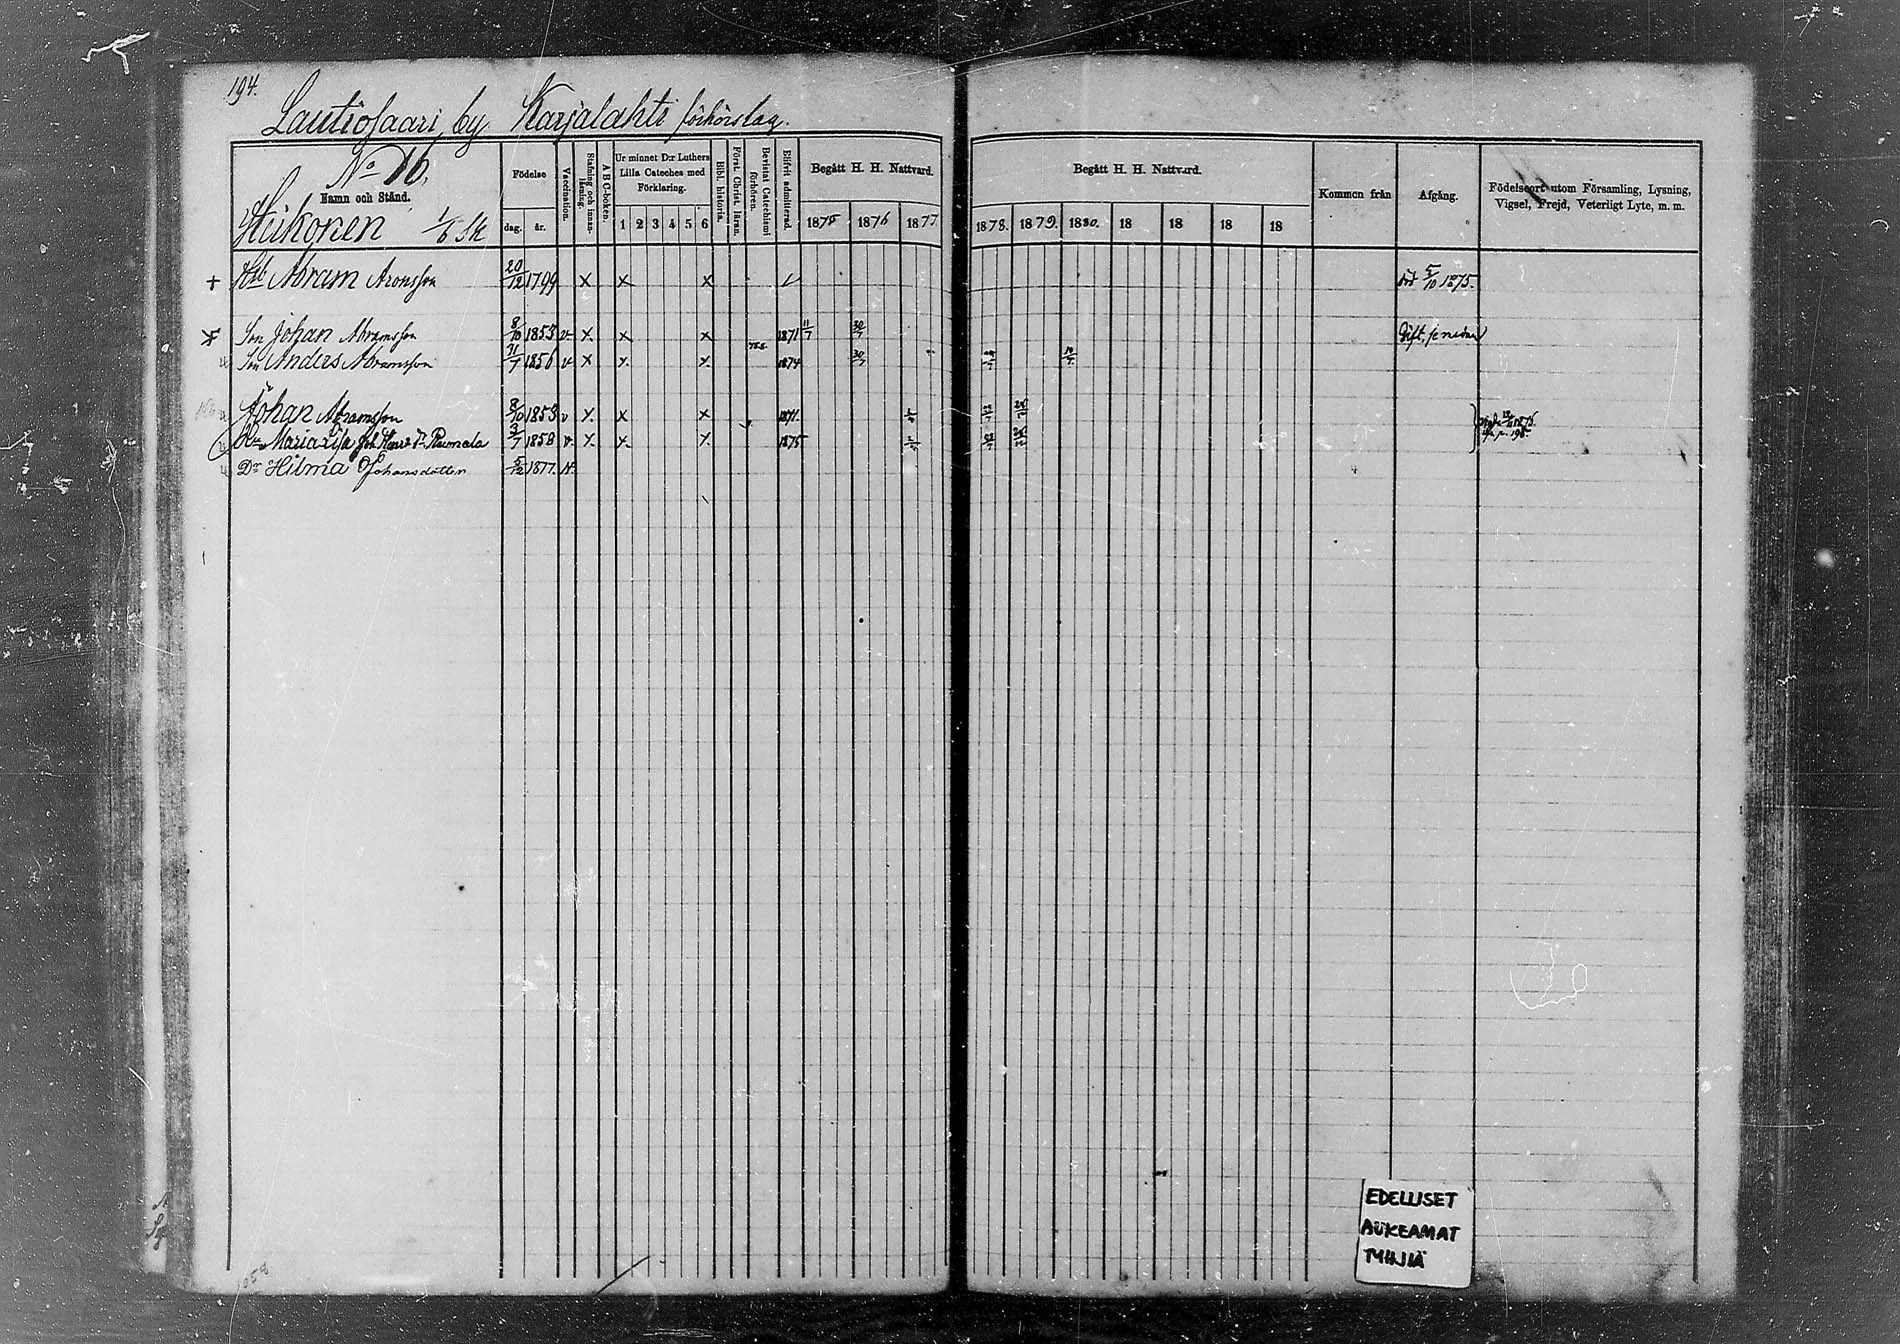 194.
Lautiosaari by Karjalahti förhörslag.
No 16.
Namn och Stånd.
Heikonen 1/6 sk
Födelse
dag. år.
Vaccination.
Stafning och innan-läsning.
A B C-boken.
Ur minnet D:r Luthers Lilla Cateches med Förklaring.
1 2 3 4 5 6
Bibl. historia.
Först. Christ. läran.
Bevistat Catechismi förhören.
Elifvit admitterad.
Begått H. H. Nattvard.
1875 1876 1877
Begått H. H. Nattvard.
1878. 1879. 1880. 18 18 18 18
Kommen från
Afgång.
Födelseort utom Församling, Lysning, Vigsel, Frejd, Veterligt Lyte, m. m.
+ Abram Aronsson 20/12 1799 x x x död 5/10 1875.
Son Johan Abramsson 8/10 1853 v x x x 1871 11/7 30/7 Gift, se nedan
Son Anders Abramsson 21/7 1856 v x x x 1874 30/7
Johan Abramsson 8/10 1853 v x x x 1871
Hu Maria Lisa Joh. 3/7 1858 v x x x 1875
Dr Hilma Johansdotter 5/12 1877. v.
EDELLISET
AUKEAMAT
TYHJIÄ